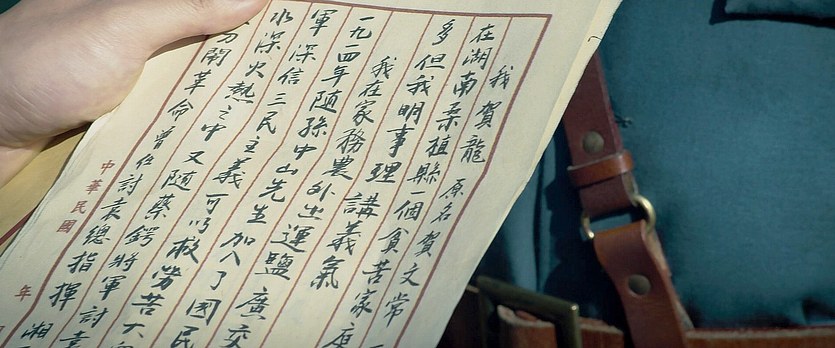 我賀龍原名賀文常
在湖南桑植縣一個貧苦家庭
多但我明事理講義氣
我在家務農外出運鹽廣交
一九一四年隨孫中山先生加入了國民
軍深信三民主義可以救勞苦大
水深火熱之中又隨蔡鍔將軍討袁
開革命曾任討袁總指揮湘
中華民國年